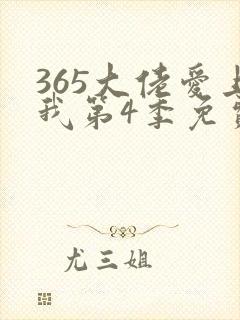 365大佬爱上
我第4季免费
尤三姐